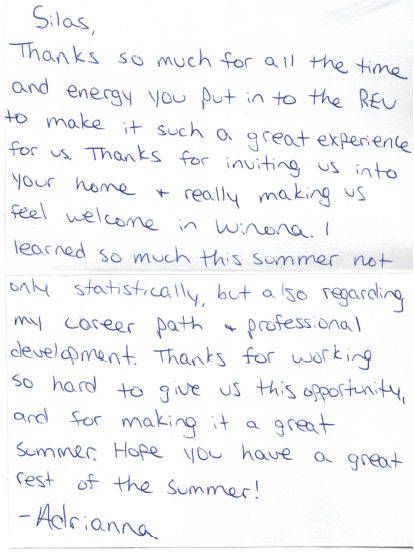 Silas,
Thanks so much for all the time
and energy you put in to the REU
to make it such a great experience
for us. Thanks for inviting us into
your home + really making us
feel welcome in Winona. I
learned so much this summer not
only statistically, but also regarding
my career path + professional
development. Thanks for working
so hard to give us this opportunity,
and for making it a great
summer. Hope you have a great
rest of the summer!
-Adrianna